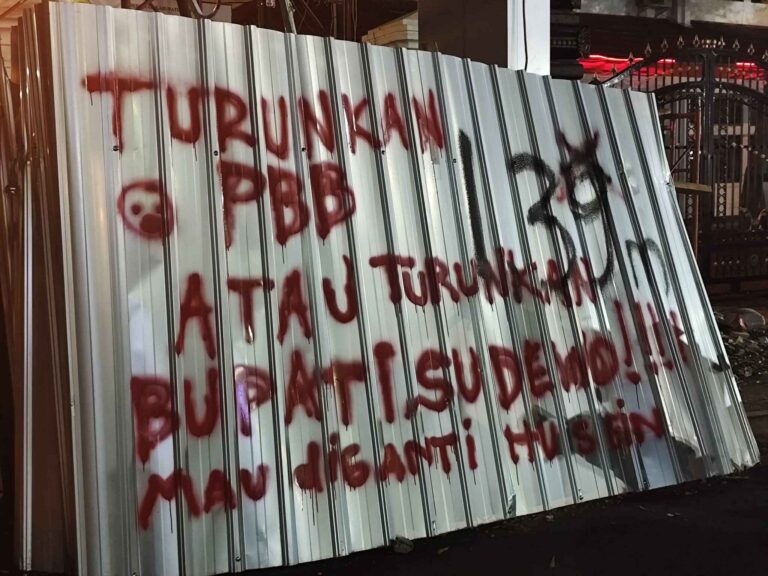 TURUNKAN
PBB
139 m
ATAU TURUNKAN
BUPATI SUDEWO!!!!
MAU diGANTi HUSEiN